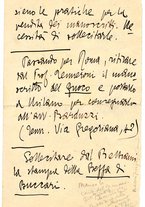 siano le pratiche per la
vendita dei manoscritti. Ne-
cessità di sollecitarlo.
Passando per Roma, ritirare
dal Prof. il mano-
scritto del Fuoco e portarlo
a Milano per consegnarlo
all'Avv. Barduzzi
(Via Gregoriana, 42)
Sollecitare dal Beltrami
la stampa della Beffa di
Buccari.